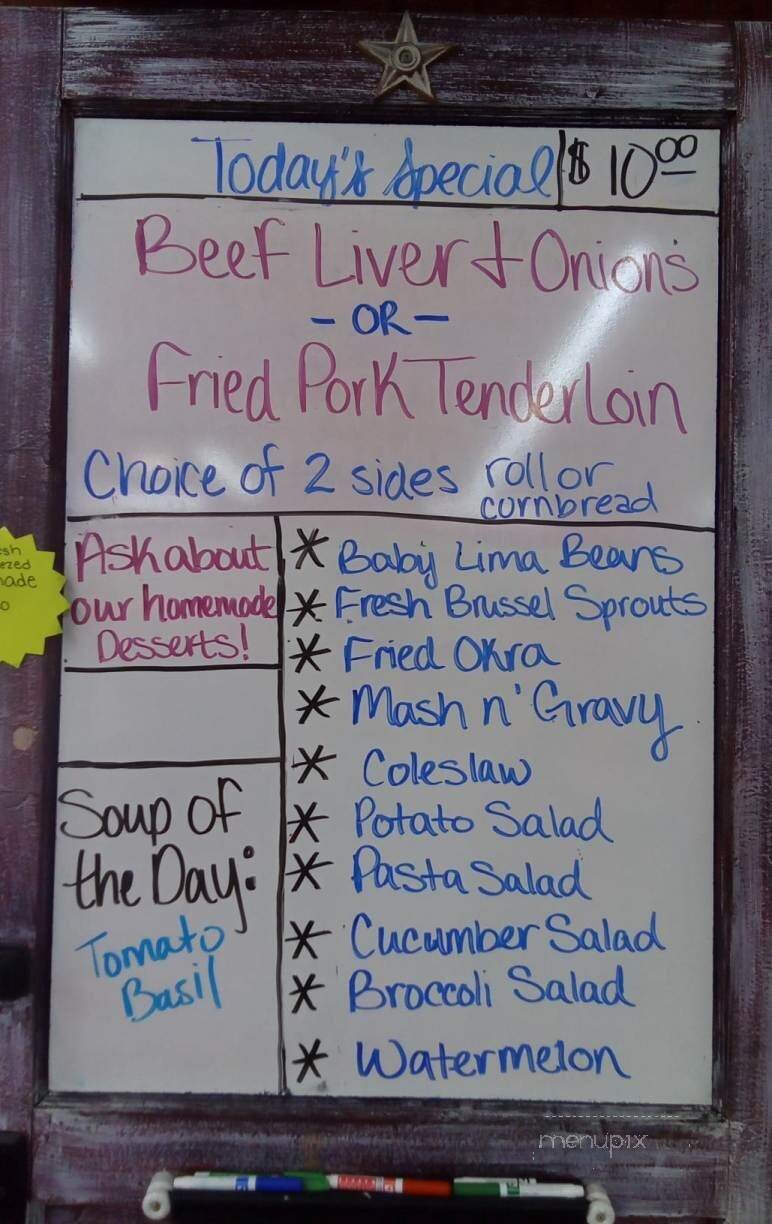 Today's Special $10.00
Beef Liver + Onions
- OR -
Fried Pork Tenderloin
Choice of 2 sides roll or
cornbread
Ask about
our homemade
Desserts!
Soup of
the Day:
Tomato
Basil
* Baby Lima Beans
* Fresh Brussel Sprouts
* Fried Okra
* Mash n' Gravy
* Coleslaw
* Potato Salad
* Pasta Salad
* Cucumber Salad
* Broccoli Salad
* Watermelon
menupix